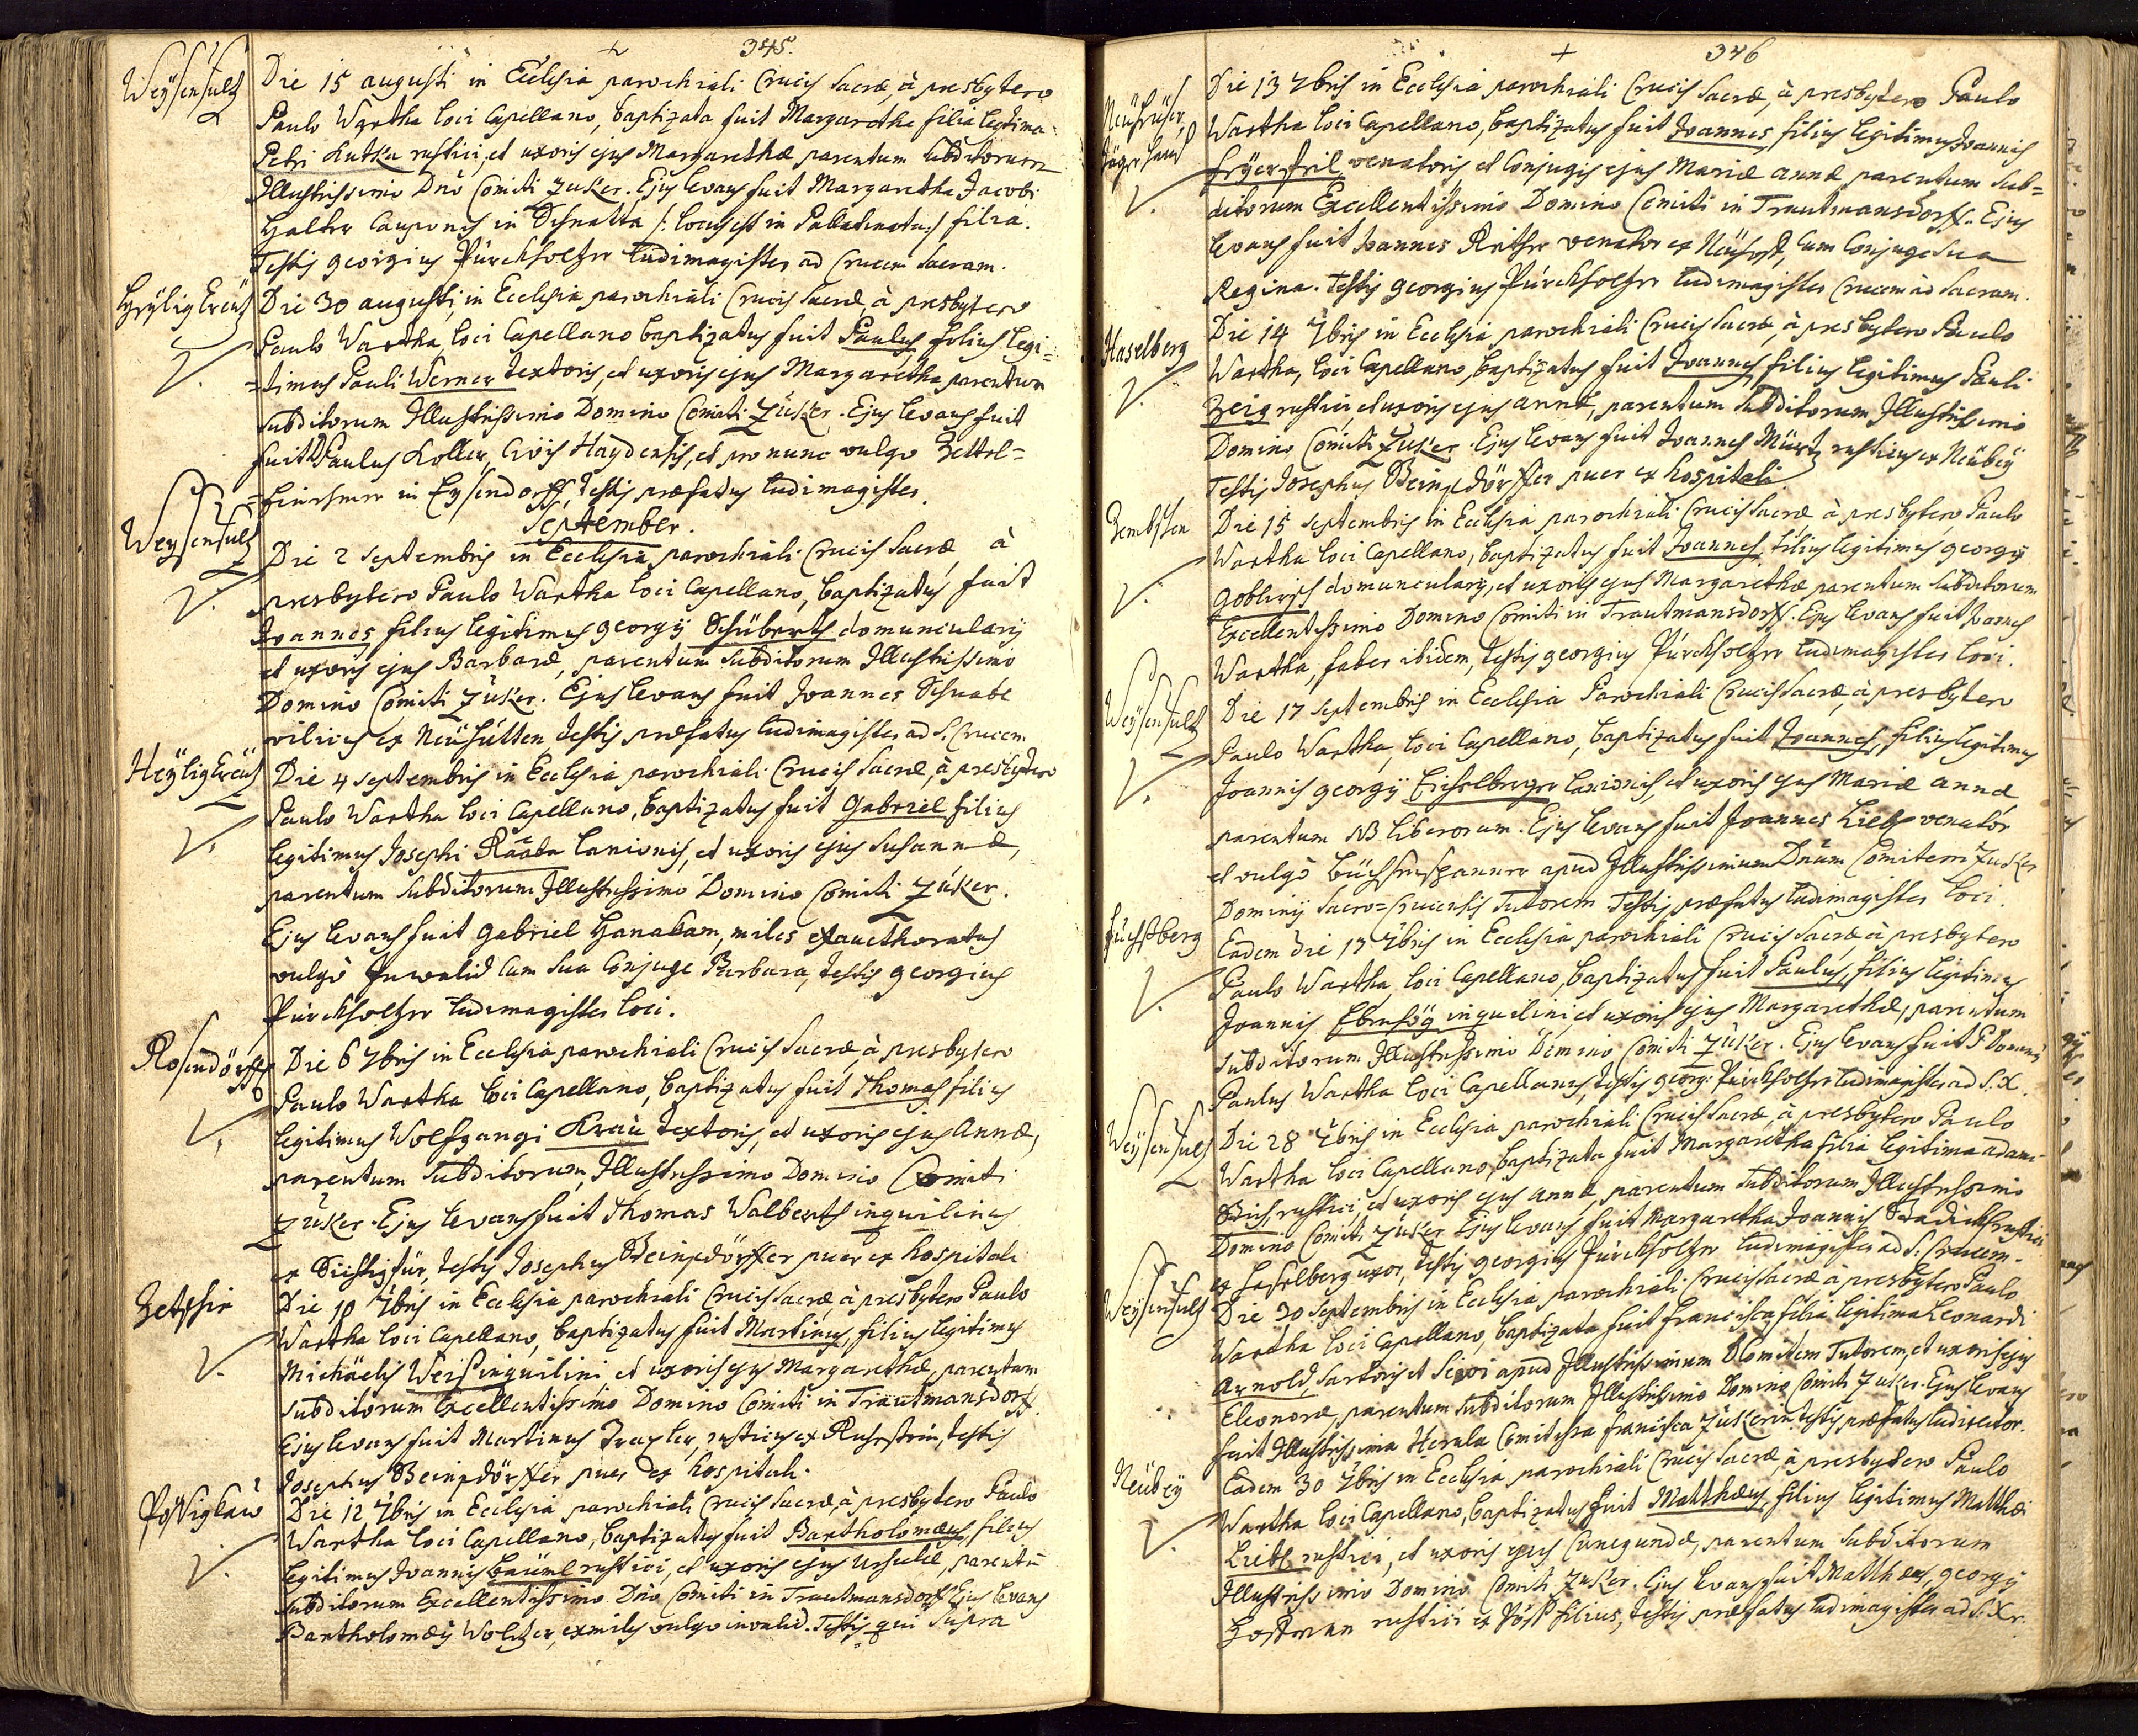 345.
Weÿsensultz
Die 15 augusti in Ecclesia parochiali Crucis Sacræ, à presbytero
Paulo Wartha loci Capellano, baptizata fuit Margaretha filia legitima
Petri Kutka rustici, et uxoris ejus Margarethæ parentum subditorum
Illustrissimo Dno Comiti Zuker. Ejus levans fuit Margaretha Jacobi
Halter Cauponis in Schnatta /: locus est in Pallatinatu :/ filia.
Testis georgius Pürckholtzer ludimagister ad Crucem Sacram.
Heÿlig Creütz
Die 30 augusti, in Ecclesia parochiali Crucis Sacræ, à presbytero
Paulo Wartha, loci Capellano baptizatus fuit Paulus filius legi=
=timus Pauli Werner textoris, et uxoris ejus Margaretha parentum
subditorum Illustrissimo Domino Comiti Zuker. Ejus levans fuit
fuit Paulus Koller, Civis Haydensis, et pro nunc vulgo Zettel=
in Eysendorff, testis præfatus ludimagister.
September.
Weysensultz
Die 2 septembris in Ecclesia parochiali Crucis Sacræ, à
presbytero Paulo Wartha loci Capellano, baptizatus fuit
Joannes, filius legitimus georgÿ Schüberth domuncularÿ
et uxoris ejus Barbaræ, parentum subditorum Illustrissimo
Domino Comiti Züker. Ejus levans fuit Joannes Schnabl
vilicus ex Neühütten, testis præfatus ludimagister ad S. Crucem
Heÿlig Creütz
Die 4 septembris in Ecclesia parochiali Crucis Sacræ, à presbytero
Paulo Wartha loci Capellano, baptizatus fuit Gabriel filius
legitimus Josephi Raaba lanionis, et uxoris ejus Susannæ,
parentum subditorum Illustrissimo Domino Comiti Züker.
Ejus levans fuit Gabriel Hanakam, miles exaucthoratus
vulgò Inwalid cum sua Conjuge Barbara, testis georgius
Pürckholtzer ludimagister loci.
Rosendörff
Die 6 7bris in Ecclesia parochiali Crucis Sacræ, à presbytero
Paulo Wartha loci Capellano, baptizatus fuit Thomas filius
legitimus Wolfgangi Kraü textoris, et uxoris ejus Annæ,
parentum subditorum, Illustrissimo Domino Comiti
Züker. Ejus levans fuit Thomas Walberth inquilinus
ex, testis Josephus Beinpdörffer puer ex hospitali
Die 10 7bris in Ecclesia parochiali Crucis Sacræ à presbytero Paulo
Wartha loci Capellano, baptizatus fuit Martinus, filius legitimus
Michäelis Weis inquilini et uxoris ejus Margarethæ, parentum
subditorum Excellentissimo Domino Comiti in Trautmansdorff.
Ejus levans fuit Martinus, rusticus ex Ruhestein, testis
Josephus Beinpdörffer puer ex hospitali.
Possigkau
Die 12 7bris in Ecclesia parochiali Crucis Sacræ, à presbytero Paulo
Wartha loci Capellano, baptizatus fuit Bartholomæus, filius
legitimus Joannis Baüml rustici, et uxoris ejus Ursulæ, parentū
subditorum Excellentissimo Dno Comiti in Trautmansdorff. Ejus levans
Bartholomæÿ Woltzer, exmiles vulgo invalid. Testis qui supra
346
Die 13 7bris in Ecclesia parochiali Crucis Sacræ, à presbytero Paulo
Wartha loci Capellano, baptizatus fuit Joannes, filius legitimus Joannis
venatoris et Conjugis ejus Mariæ annæ parentum sub=
ditorum Excellentissimo Domino Comiti in Trautmansdorff. Ejus
levans fuit Joannes Reither venator ex, cum Conjuge sua
Regina. testis georgius Pürckholtzer ludimagister Crucem ad Sacram.
Haselberg
Die 14 7bris in Ecclesia parochiali Crucis Sacræ, à presbytero Paulo
Wartha, loci Capellano, baptizatus fuit Joannes, filius legitimus Pauli
Zeig rustici, et uxoris ejus annæ, parentum subditorum Illustrissimo
Domino Comiti Zuker. Ejus levans fuit Joannes Mürtz rusticus ex Neübeÿ
Testis Josephus Beinpdörffer puer ex hospitali
Die 15 septembris in Ecclesia parochiali Crucis Sacræ à presbytero Paulo
Wartha loci Capellano, baptizatus fuit Joannes, filius legitimus georgÿ
goblirsch domuncularÿ, et uxoris ejus Margarethæ parentum subditorum
Excellentissimo Domino Comiti in Trautmansdorff. Ejus levans fuit Joannes
Wartha, faber ibidem, testis georgius Pürckholtzer ludimagister loci.
Weÿsensultz
Die 17 septembris in Ecclesia Parochiali Crucis Sacræ, à presbytero
Paulo Wartha, loci Capellano, baptizatus fuit Joannes, filius legitimus
Joannis georgÿ Eichelberger lanionis, et uxoris ejus Mariæ annæ
parentum NB liberorum. Ejus levans fuit Joannes Liebl venator
et vulgò büchsenspanner apud Illustrissimum Dnum Comitem Zuker
Dominÿ Sacro=Crucensis Tutorem Testis præfatus ludimagister loci.
Füchsberg
Eadem die 17 7bris in Ecclesia parochiali Crucis Sacræ à presbytero
Paulo Wartha, loci Capellano, baptizatus fuit Paulus, filius legitimus
Joannis inquilini, et uxoris ejus Margarethæ, parentum
subditorum Illustrissimo Domino Comiti Züker. Ejus levans fuit P. Dominus
Paulus Wartha loci Capellanus, testis georg: Pürckholtzer ludimagister ad S. X.
Weÿsensultz
Die 28 7bris in Ecclesia parochiali Crucis Sacræ, à presbytero Paulo
Wartha loci Capellano, baptizata fuit Margaretha filia legitima adami
rustici, et uxoris ejus annæ, parentum subditorum Illustrissimo
Domino Comiti Züker. Ejus levans fuit Margaretha Joannis rustici
ex Haselberg uxor, testis georgius Pürckholtzer ludimagister ad S. Crucem.
Weÿsensultz
Die 30 septembris in Ecclesia parochiali Crucis Sacræ à presbytero Paulo
Wartha loci Capellano, baptizata fuit francisca filia legitima Leonardi
Arnold, sartoris et apud Illustrissimum D Comitem Tutorem, et uxoris ejus
Eleonoræ, parentum subditorum Illustrissimo Domino Comiti Zuker. Ejus levans
fuit Illustrissima Herula Comitissa francisca Zükerin, testis præfatus ludirector.
Neübeÿ
Eadem 30 7bris in Ecclesia parochiali Crucis Sacræ, à presbytero Paulo
Wartha loci Capellano, baptizatus fuit Matthæus, filius legitimus Matthæi
Liebl rustici, et uxoris ejus Cunegundæ, parentum subditorum
Illustrissimo Domino Comiti Zuker. Ejus levans fuit Matthæus, georgÿ
rustici ex filius, testis præfatus ludimagister ad S. Xr.